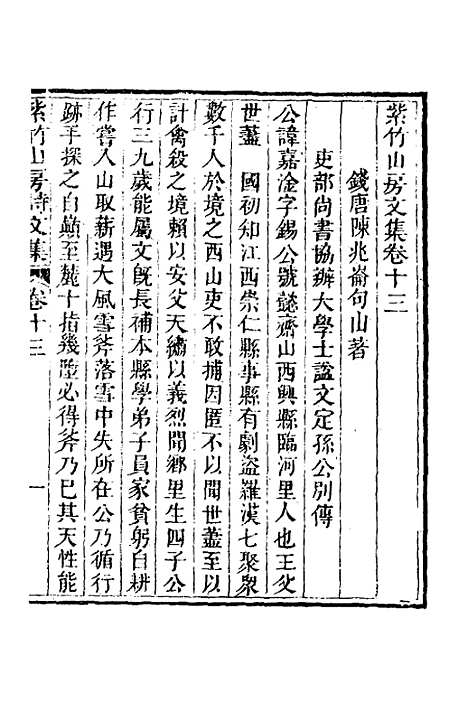 紫竹山房文集卷十三
錢唐陳兆崙句山著
吏部尚書協辦大學士諡文定孫公別傳
公諱嘉淦字錫公號懿齋山西興縣臨河里人也王父
世藎　國初知江西崇仁縣事縣有劇盜羅漢七聚衆
數千人於境之西山吏不敢捕因匿不以聞世藎至以
計禽殺之境賴以安父天繡以義烈聞鄉里生四子公
行三九歲能屬文旣長補本縣學弟子員家貧躬自耕
作嘗入山取薪遇大風雪斧落雪中失所在公乃循行
跡手探之自巔至麓十指幾墮必得斧乃已其天性能
紫竹山房詩文集　卷十三　一